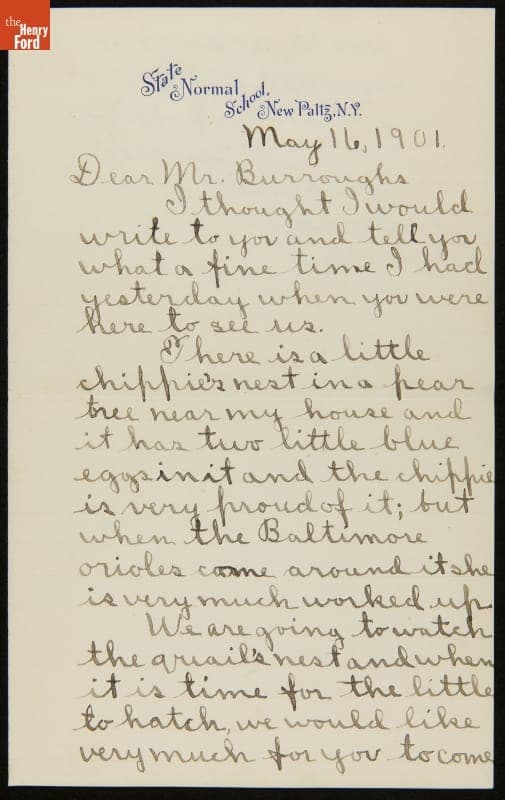 the
Henry
Ford
State
Normal
School,
New Paltz, N.Y.
May 16, 1901.
Dear Mr. Burroughs
I thought I would
write to you and tell you
what a fine time I had
yesterday when you were
here to see us.
There is a little
chippie's nest in a pear
tree near my house and
it has two little blue
eggs in it and the chippie
is very proud of it; but
when the Baltimore
orioles come around it she
is very much worked up.
We are going to watch
the quail's nest and when
it is time for the little
to hatch, we would like
very much for you to come